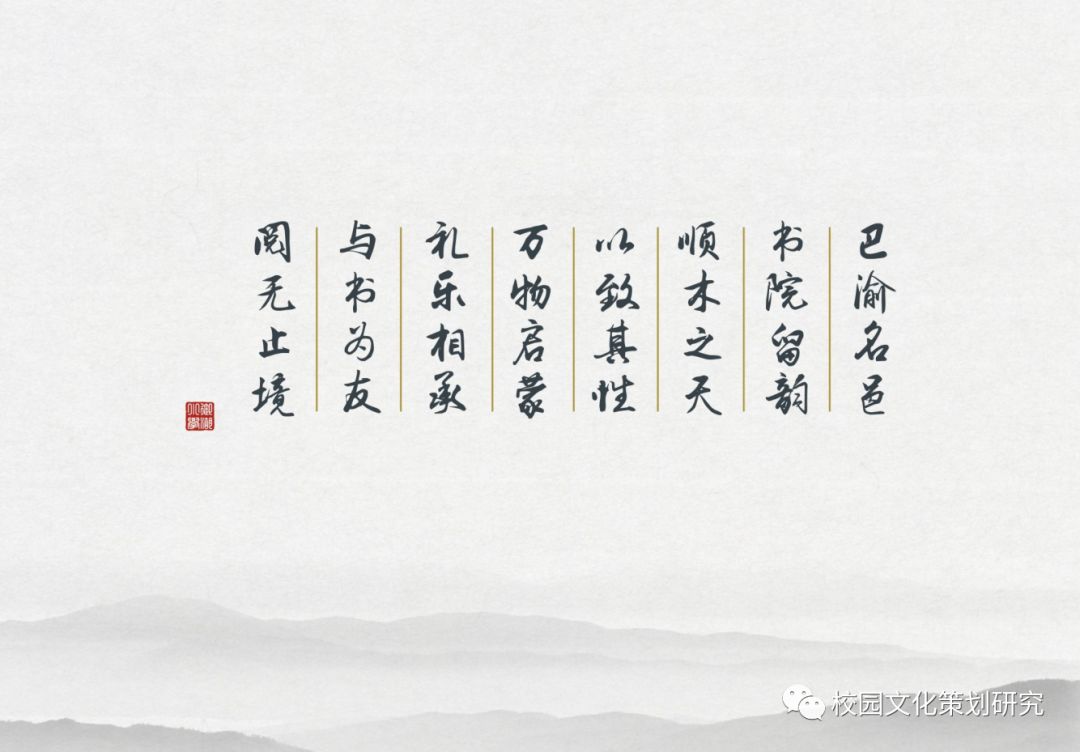 巴渝名邑
书院留韵
顺木之天
以致其性
万物启蒙
礼乐相承
与书为友
阅无止境
校园文化策划研究